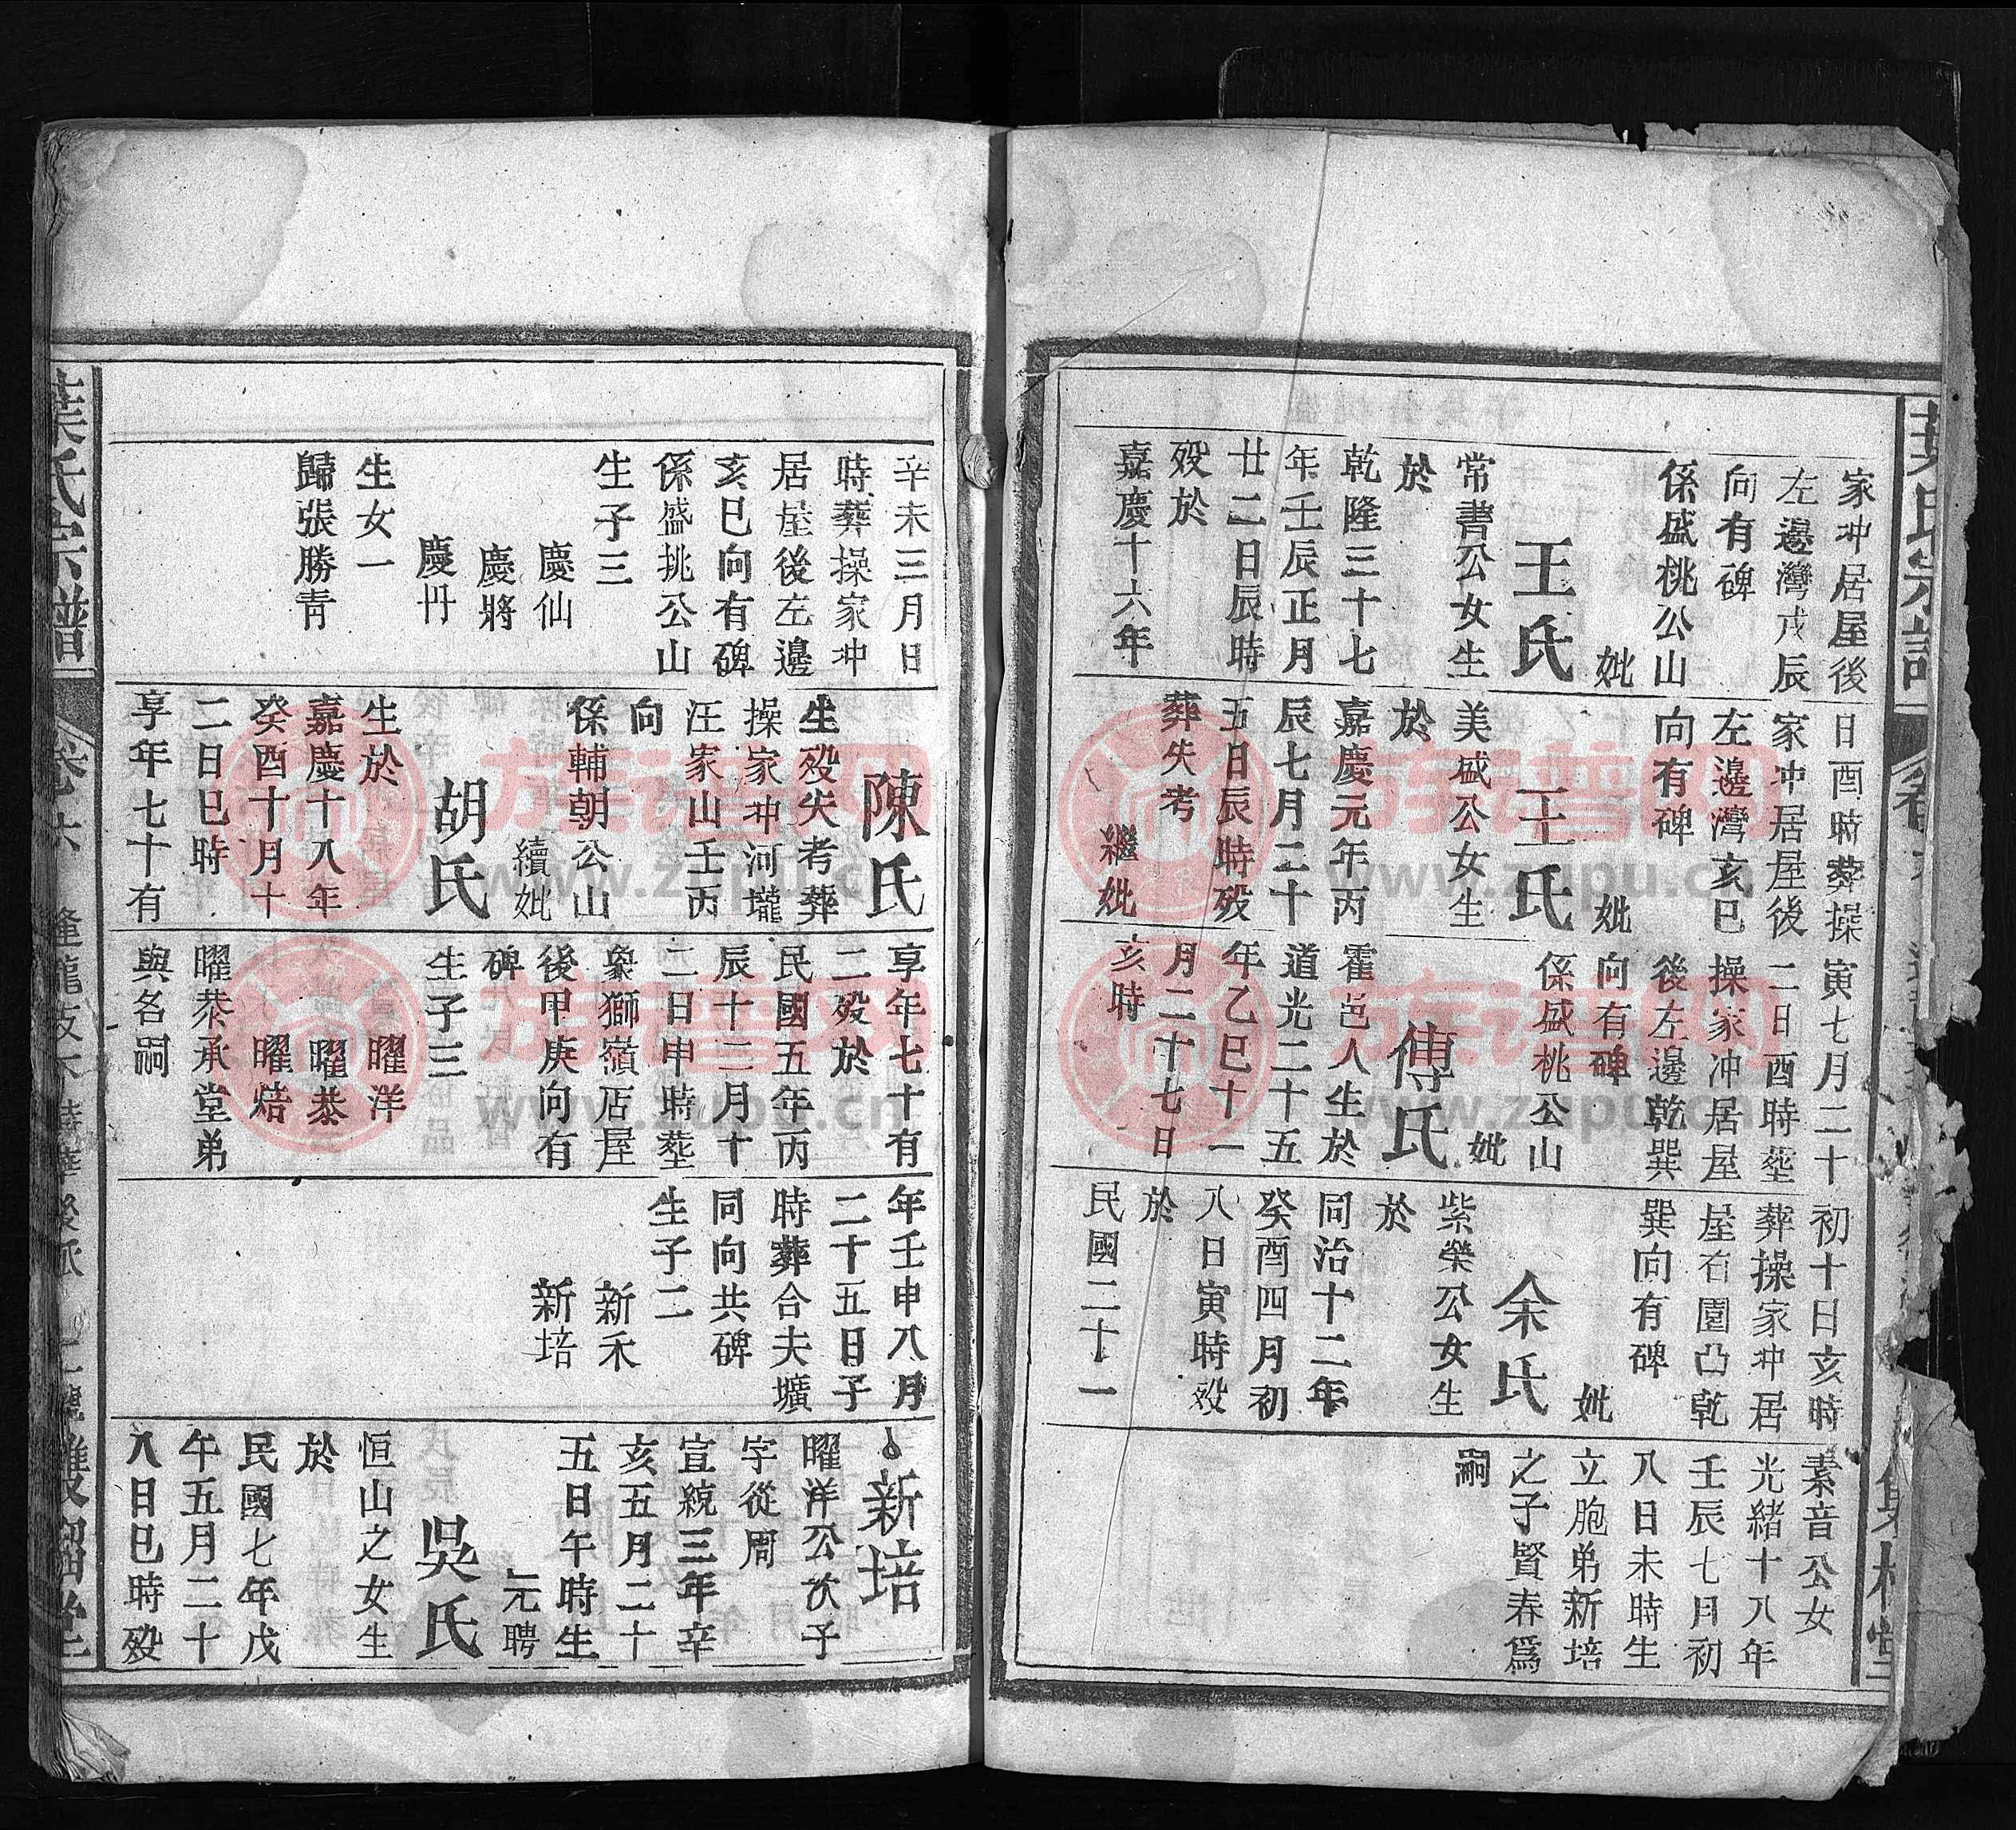 家冲居屋後
左邊灣戌辰
向有碑
係盛桃公山
妣
王氏
常書公女生
於
乾隆三十七
年壬辰正月
廿二日辰時
歿於
嘉慶十六年
日酉時葬操
家冲居屋後
左邊灣亥巳
向有碑
妣
王氏
美盛公女生
於
嘉慶元年丙
辰七月二十
五日辰時歿
葬失考
繼妣
寅七月二十
二日酉時塟
操家冲居屋
後左邊乾巽
向有碑
係盛桃公山
妣
傅氏
霍邑人生於
道光二十五
年乙巳十一
月二十七日
亥時
初十日亥時
葬操家冲居
屋右園凸乾
巽向有碑
妣
余氏
紫榮公女生
於
同治十二年
癸酉四月初
八日寅時歿
於
民國二十一
素音公女
光緒十八年
壬辰七月初
八日未時生
立胞弟新培
之子賢春爲
嗣
辛未三月日
時葬操家冲
居屋後左邊
亥巳向有碑
係盛挑公山
生子三
慶仙
慶將
慶丹
生女一
歸張勝青
陳氏
生歿失考葬
操家冲河壠
汪家山壬丙
向
係輔朝公山
續妣
胡氏
生於
嘉慶十八年
癸酉十月十
二日巳時
享年七十有
享年七十有
二歿於
民國五年丙
辰十二月十
二日申時塟
象獅嶺店屋
後甲庚向有
碑
生子三
曜洋
曜恭
曜焙
曜恭承堂弟
與名嗣
年壬申八月
二十五日子
時葬合夫壙
同向共碑
生子二
新禾
新培
新培
曜洋公次子
字從周
宣統三年辛
亥五月二十
五日午時生
元聘
吳氏
恒山之女生
於
民國七年戊
午五月二十
八日巳時歿
葉氏宗譜
卷六
族谱网
www.zupu.cn
族谱网
www.zupu.cn
族谱网
www.zupu.cn
族谱网
www.zupu.cn